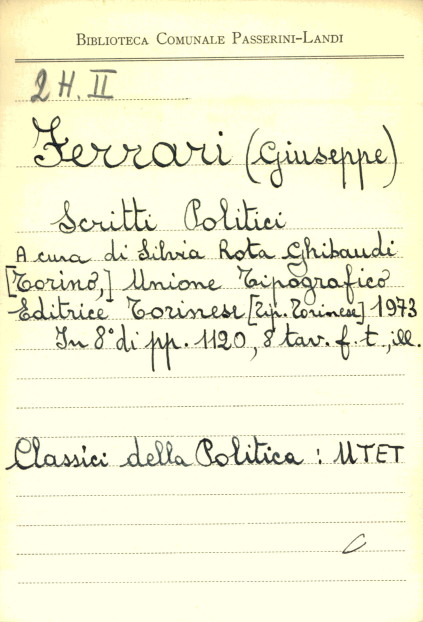 BIBLIOTECA COMUNALE PASSERINI-LANDI
2H.II
Ferrari (Giuseppe)
Scritti Politici
A cura di Silvia Rota Ghibaudi
[Torino,] Unione Tipografico
Editrice Torinese [Tip. Torinese] 1973
In 8° di pp. 1120, 8 tav. f. t., ill.
Classici della Politica : UTET
C